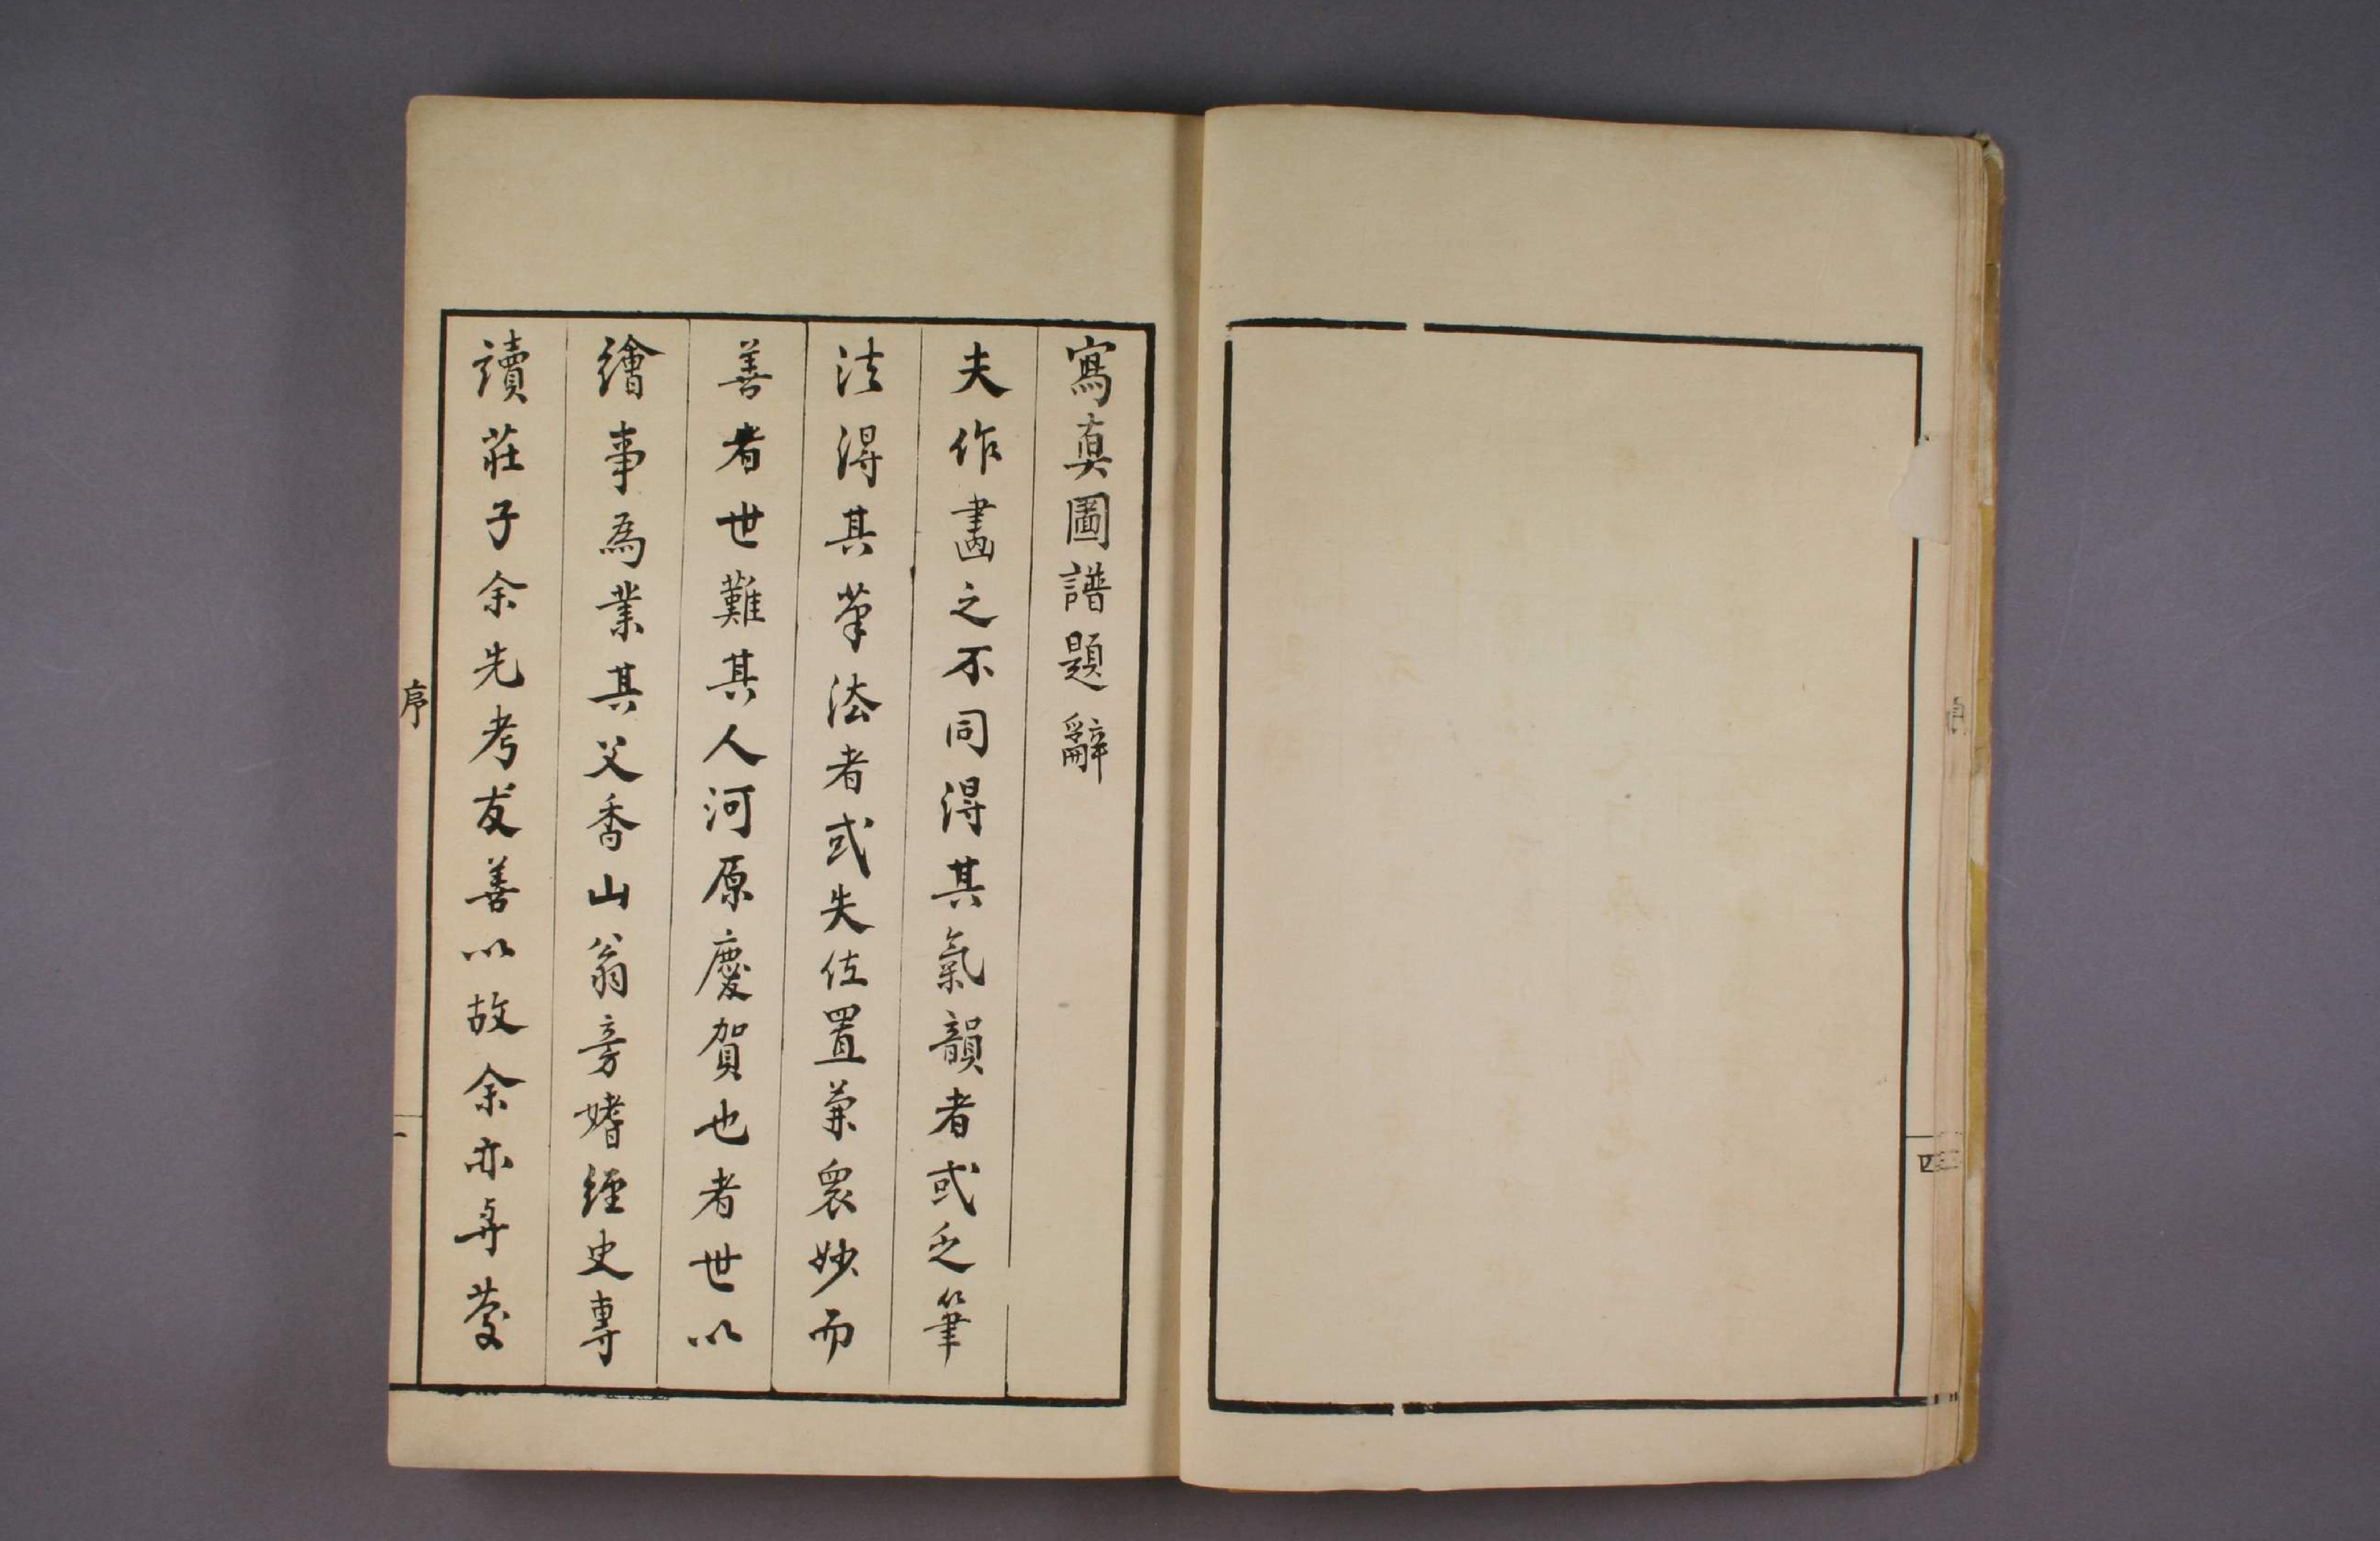 寫真圖譜題辭
夫作畫之不同得其氣韻者或乏筆
法得其筆法者或失位置兼衆妙而
善者世難其人河原慶賀也者世以
繪事為業其父香山翁旁嗜經史專
讀莊子余先考友善以故余亦辱
序
一
四